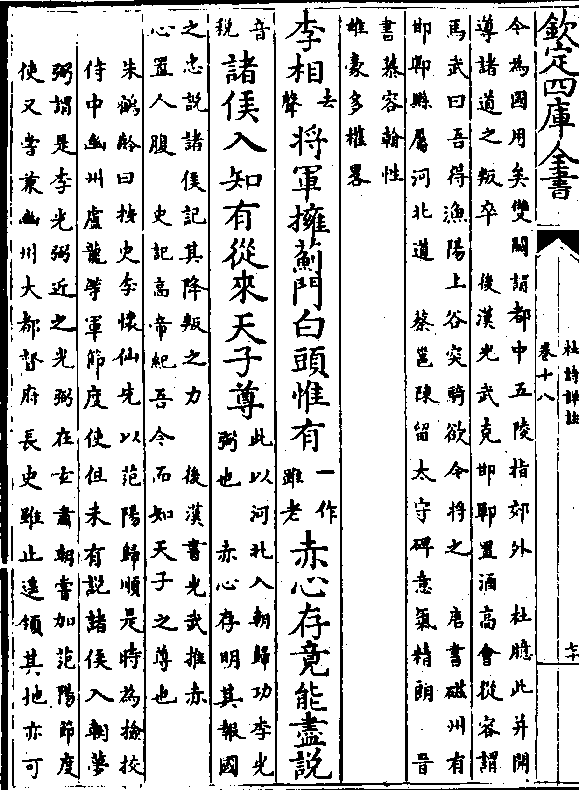 欽定四庫全書
杜詩詳註
卷十八
令為國用矣雙闕謂都中五陵指郊外 杜臆此并開
導諸道之叛卒 後漢光武克邯鄲置酒高會從容謂
馬武曰吾得漁陽上谷突騎欲令將之 唐書磁州有
邯鄲縣屬河北道 蔡邕陳留太守碑意氣精朗 晉
書慕容翰性
雄豪多權畧
李相去聲將軍擁薊門白頭惟有一作雖老赤心存竟能盡説
音税諸侯入知有從來天子尊此以河北入朝歸功李光
弼也 赤心存明其報國
之忠説諸侯記其降叛之力 後漢書光武推赤
心置人腹 史記高帝紀吾今而知天子之尊也
朱鶴齡曰按史李懷仙先以范陽歸順是時為檢校
侍中幽州盧龍等軍節度使但未有説諸侯入朝夢
弼謂是李光弼近之光弼在玄肅朝嘗加范陽節度
使又嘗兼幽州大都督府長史雖止遥領其地亦可